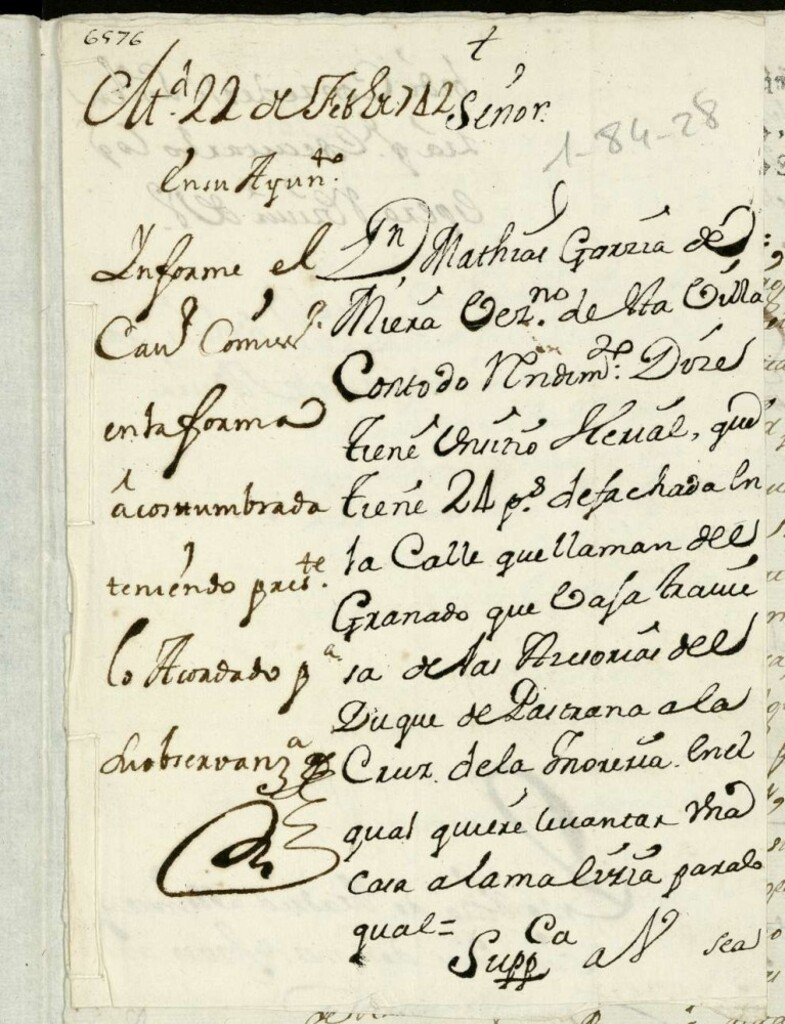 6576
+
M.d 22 de Febr.o 742
Señor
1-84-28
En su Ayun.to
Informe el
Cau.o Comiss.o
en la forma
acostumbrada
teniendo pres.te
lo Acordado p.a
su observanz.a
Dn Mathias Garzia de
Miera Vez.no de esta Villa
Con todo Rendim.to Dize
tiene un sitio Herial, que
tiene 24 p.s de fachada En
la Calle que llaman del
Granado que Vaja trauie
sa de las Acesorias del
Duque de Pastrana a la
Cruz de la moreria. En el
qual quiere leuantar una
casa a la malizia para lo
qual=
Supp.Ca a V sea